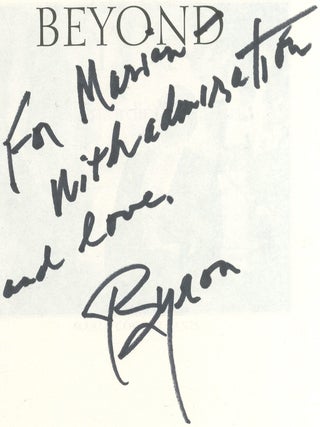 BEYOND
For Marian
With admiration
and love,
Byron